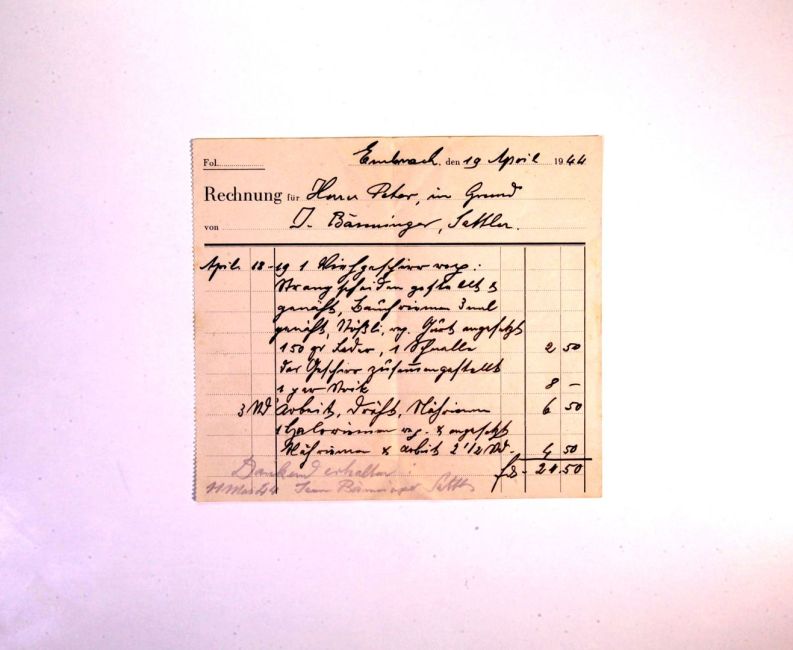 Fol. Embrach, den 19 April 1944
Rechnung für Herrn Peter, in Grund
von J. Bänninger, Sattler.
April 18-19 1 Viehgeschirr rep:
Strangscheiden gestellt &
genäht, Bauchriemen 3 mal
genäht, Stößli, rep. Gurt angesetzt
150 gr Leder, 1 Schnalle 2 50
das Geschirr zusammengestellt
1 par Strik 8 –
3 Std Arbeit, Dräht, Nähriemen 6 50
1 rep. & angesetzt
Nähriemen & Arbeit 2 1/2 Std. 4 50
frs - 21.50
Dankend erhalten:
11 Mai 44 Bänninger Sattler